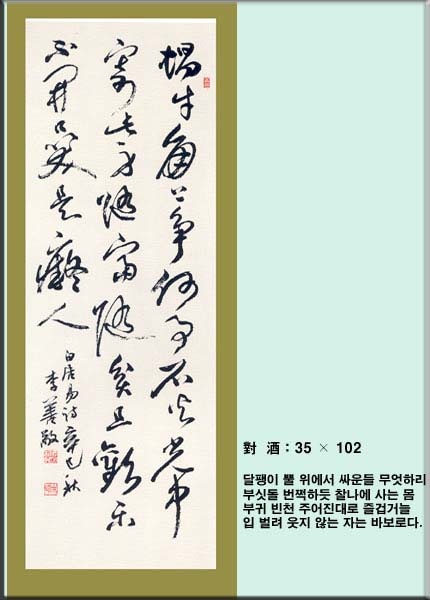 蝸牛角上爭何事石火光中
寄此身隨富隨貧且歡樂
不開口笑是癡人
白居易詩 辛巳秋
李善敬
對 酒 : 35 × 102
달팽이 뿔 위에서 싸운들 무엇하리
부싯돌 번쩍하듯 찰나에 사는 몸
부귀 빈천 주어진대로 즐겁거늘
입 벌려 웃지 않는 자는 바보로다.